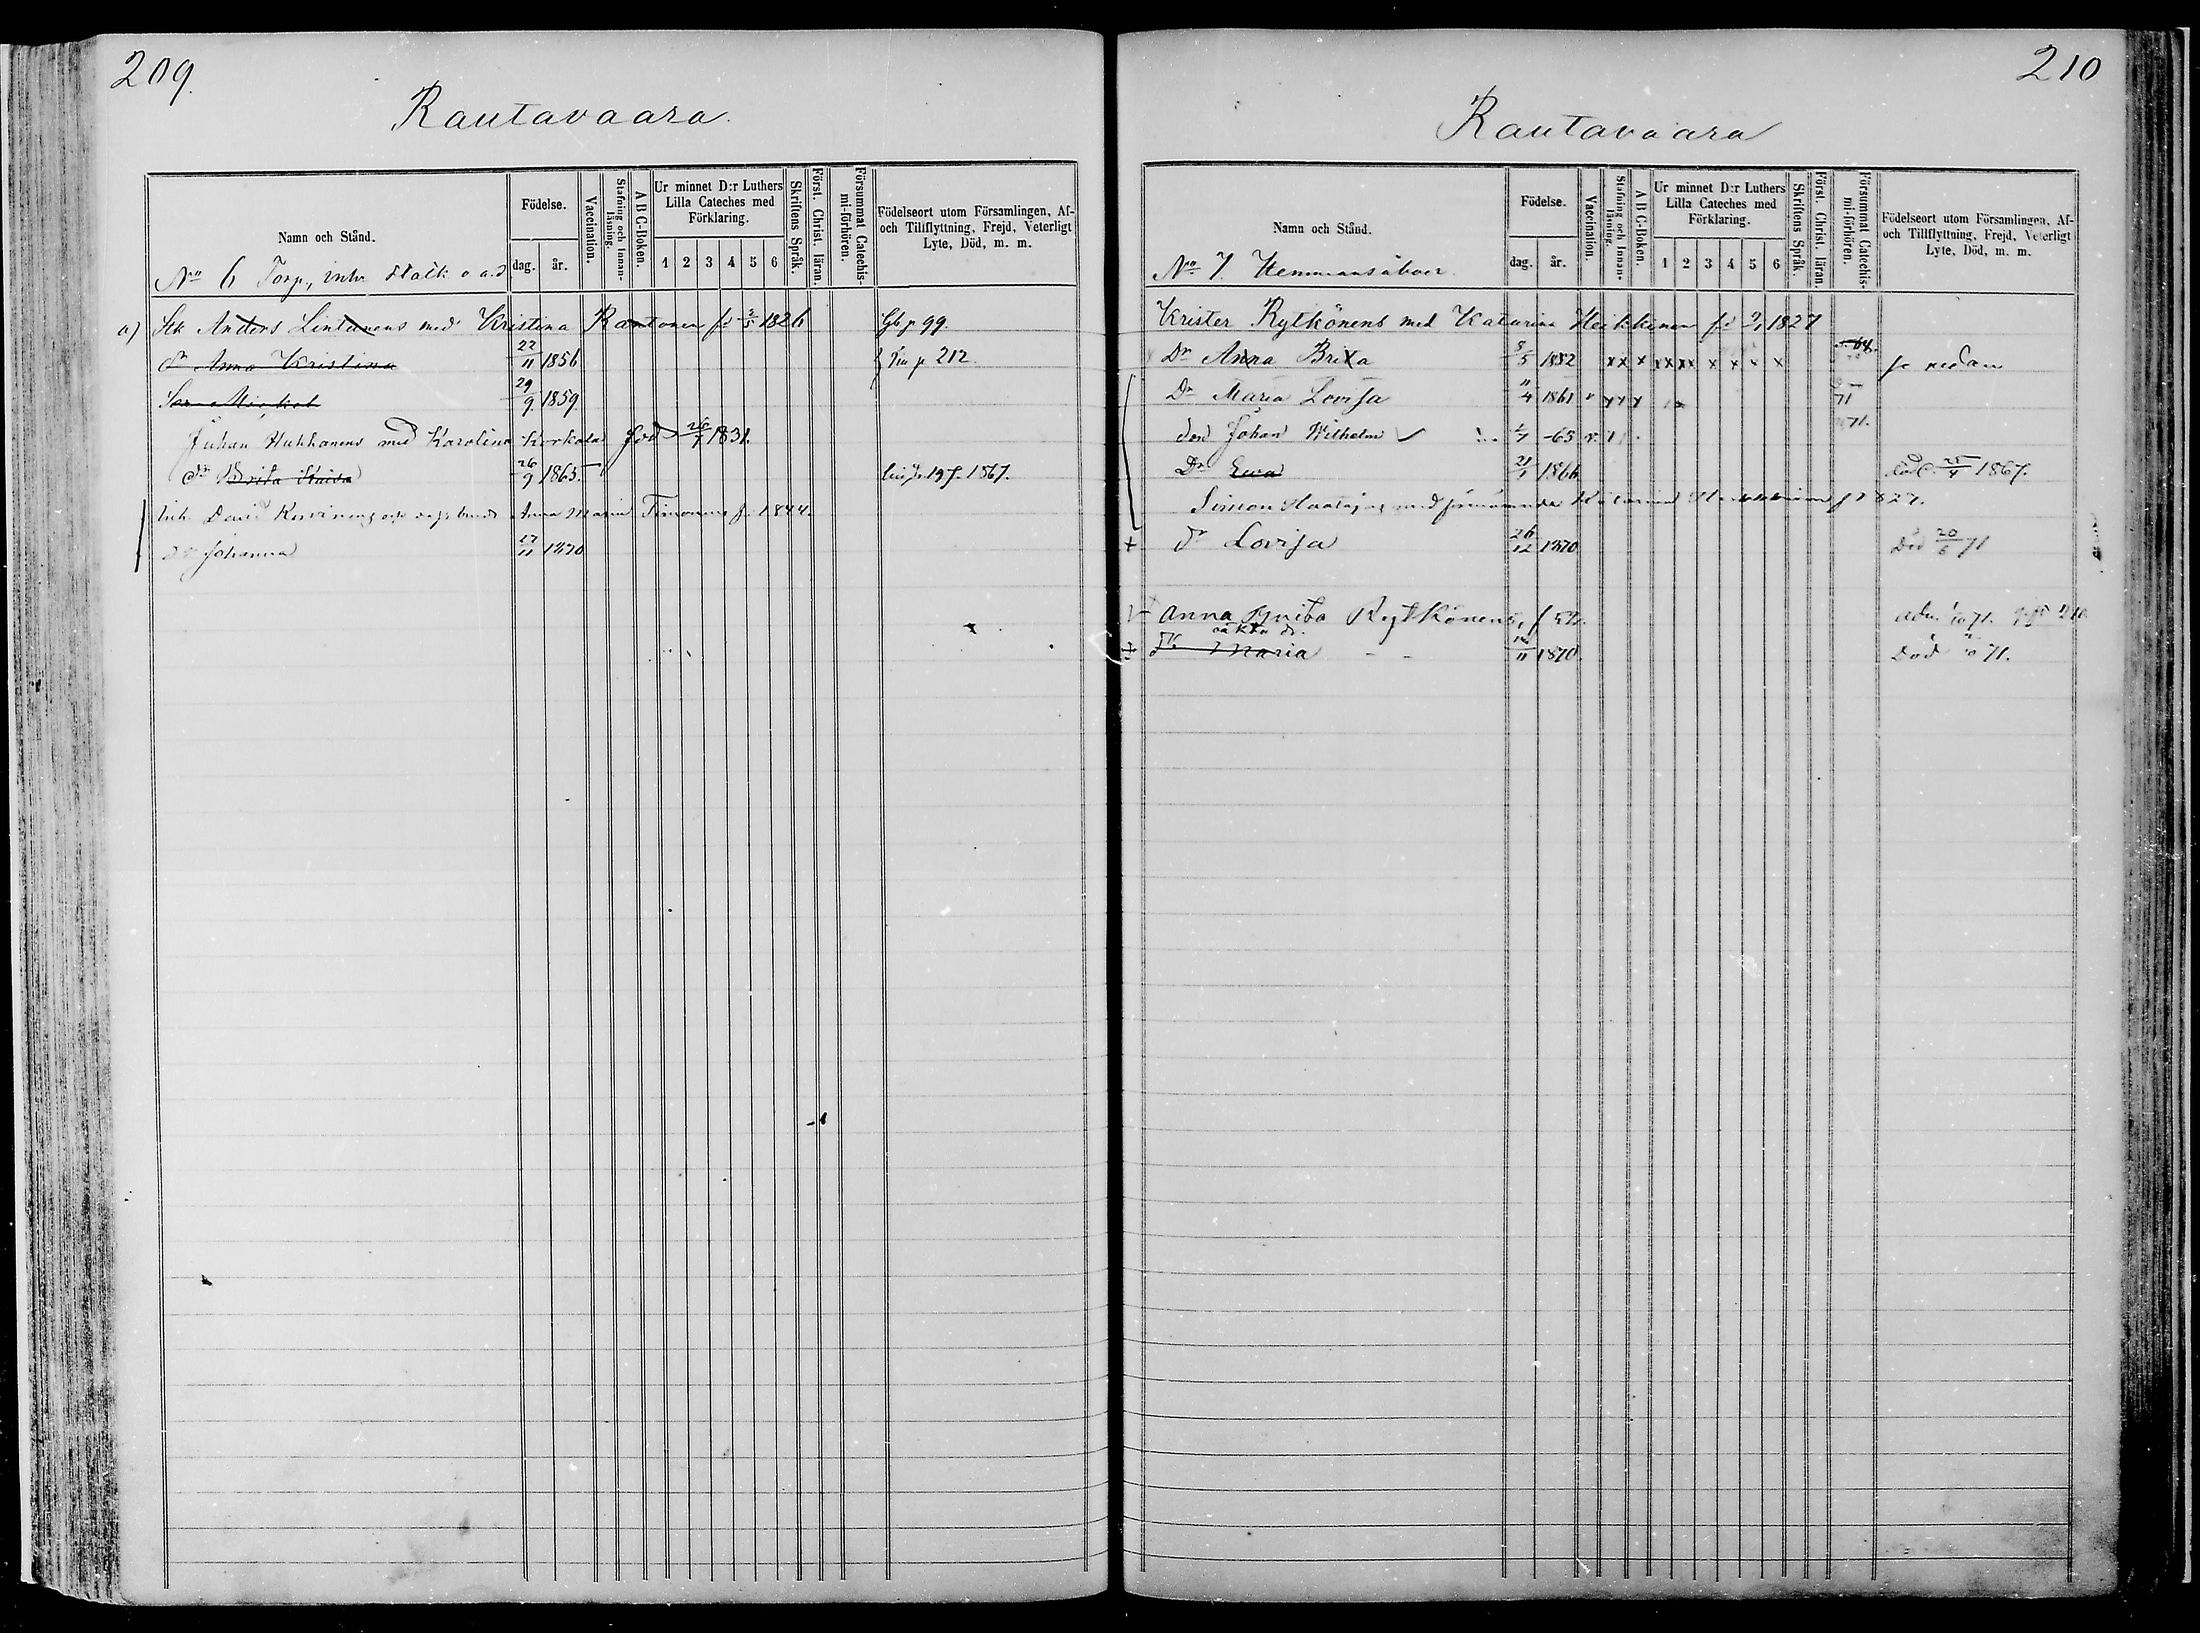 209.
Rautavaara.
Namn och Stånd.
Födelse.
dag.
år.
Vaccination.
Stafning och Innan-
läsning.
A B C-Boken.
Ur minnet D:r Luthers
Lilla Cateches med
Förklaring.
1 2 3 4 5 6
Skriftens Språk.
Först. Christ. läran.
Försummat Catechis-
mi-förhören.
Födelseort utom Församlingen, Af-
och Tillflyttning, Frejd, Veterligt
Lyte, Död, m. m.
No 6 Torp, inhr
a) Anders Lintunens med Kristina Rantonen fd 3/5 1826 p 99.
dr Anna Kristina 22/11 1856 p 212.
Son Mickel 29/9 1859
Johan Hukkanens med Karolina Korkala född 26/7 1831.
dr Brita 26/9 1865. 1867.
Anna Maria Timonens f. 1844.
dr Johanna 17/11 1870
210
Rautavaara
Namn och Stånd.
Födelse.
dag.
år.
Vaccination.
Stafning och Innan-
läsning.
A B C-Boken.
Ur minnet D:r Luthers
Lilla Cateches med
Förklaring.
1 2 3 4 5 6
Skriftens Språk.
Först. Christ. läran.
Försummat Catechis-
mi-förhören.
Födelseort utom Församlingen, Af-
och Tillflyttning, Frejd, Veterligt
Lyte, Död, m. m.
No 7. Hemmansåboer.
Krister Rytkönens med Katarina Heikkinen fd 1827
Dr Anna Brita 8/5 1852 x x x x x x x x x x 68. se nedan
Dr Maria Lovisa 11/4 1861 v x x x 71
Son Johan Wilhelm -63 v 71.
Dr Ewa 21/1 1866 död 25/4 1867.
Simon med förenämnda Katarina f 1827.
+ dr Lovisa 26/12 1870 Död 20/6 71
Anna Brita Rytkönens, f 52. 71. 210
oäkta dr.
Dr Maria 11 1870. Död 71.